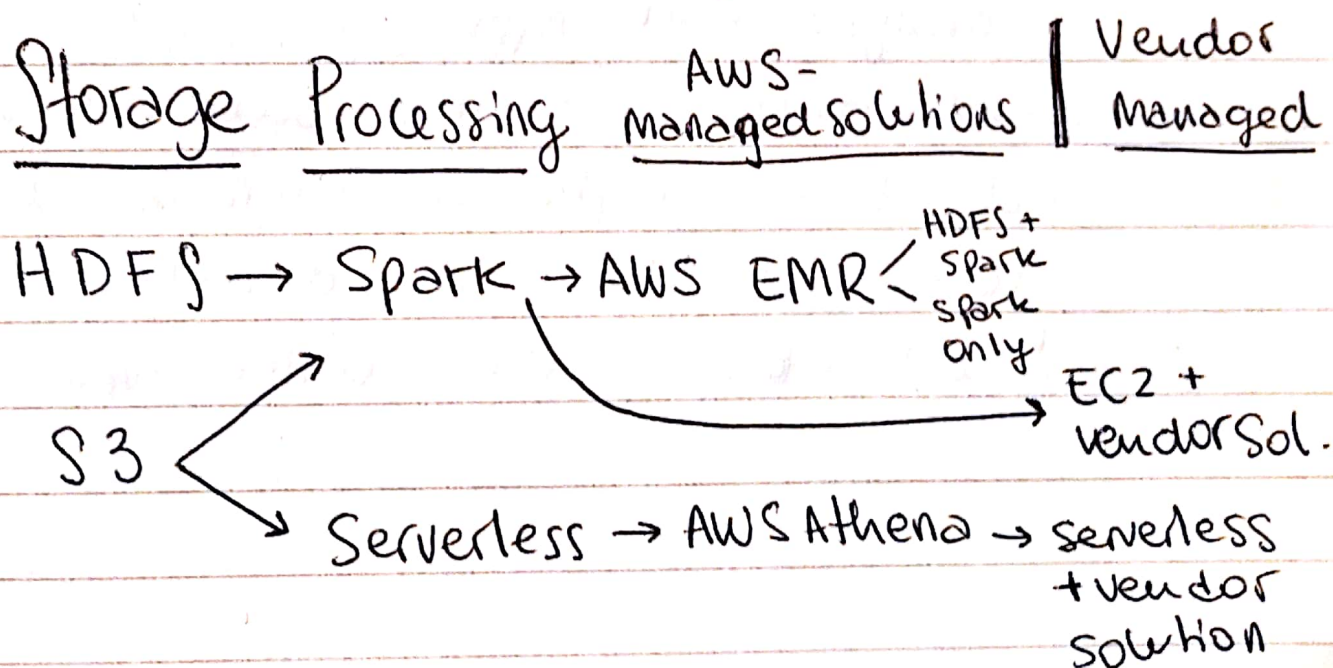 Storage Processing AWS- managed solutions Vendor Managed
HDFS → Spark → AWS EMR < HDFS + Spark
Spark only
EC2 + vendor Sol.
S3
Serverless → AWS Athena → serverless
+ vendor
solution